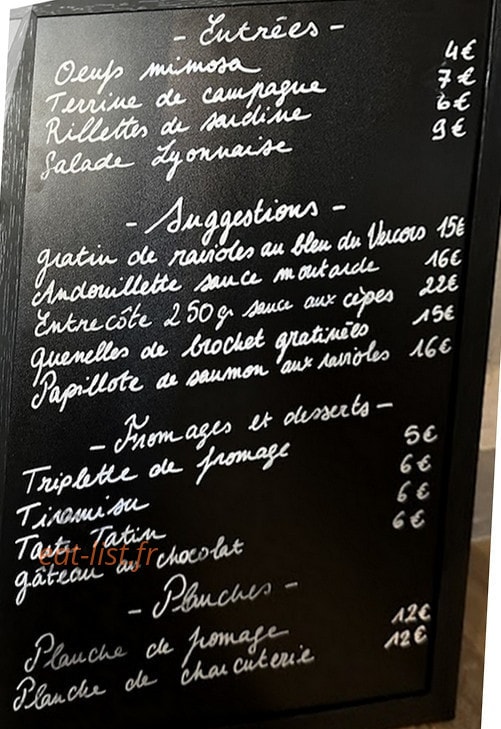 - Entrées -
Oeufs mimosa 4€
Terrine de campagne 7€
Rillettes de sardine 6€
Salade Lyonnaise 9€
- Suggestions -
gratin de ravioles au bleu du Vercors 15€
Andouillette sauce moutarde 16€
Entrecôte 250gr sauce aux cèpes 22€
quenelles de brochet gratinées 15€
Papillote de saumon aux ravioles 16€
- Fromages et desserts -
Triplette de fromage 5€
Tiramisu 6€
Tarte Tatin 6€
gâteau au chocolat 6€
eat-list.fr
- Planches -
Planche de fromage 12€
Planche de charcuterie 12€